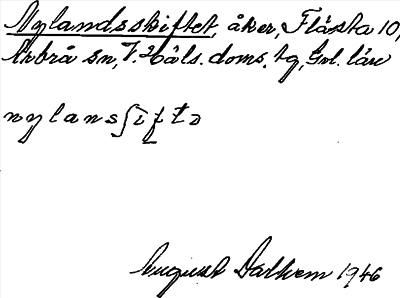 Nylandsskiftet, åker, Flästa 10,
Arbrå sn, V. Häls. doms. tg, Gvl. län
nylansʃiftə
August Dalhem 1946